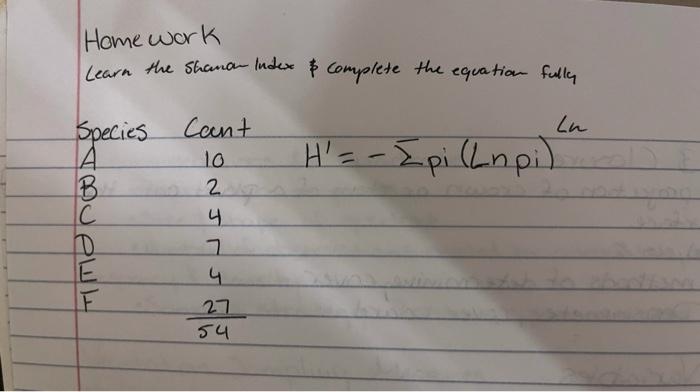 Homework
Learn the Shanon Index & complete the equation fully
Species Count
Ln
A 10 H' = - Σpi (Ln pi)
B 2
C 4
D 7
E 4
F 27
54